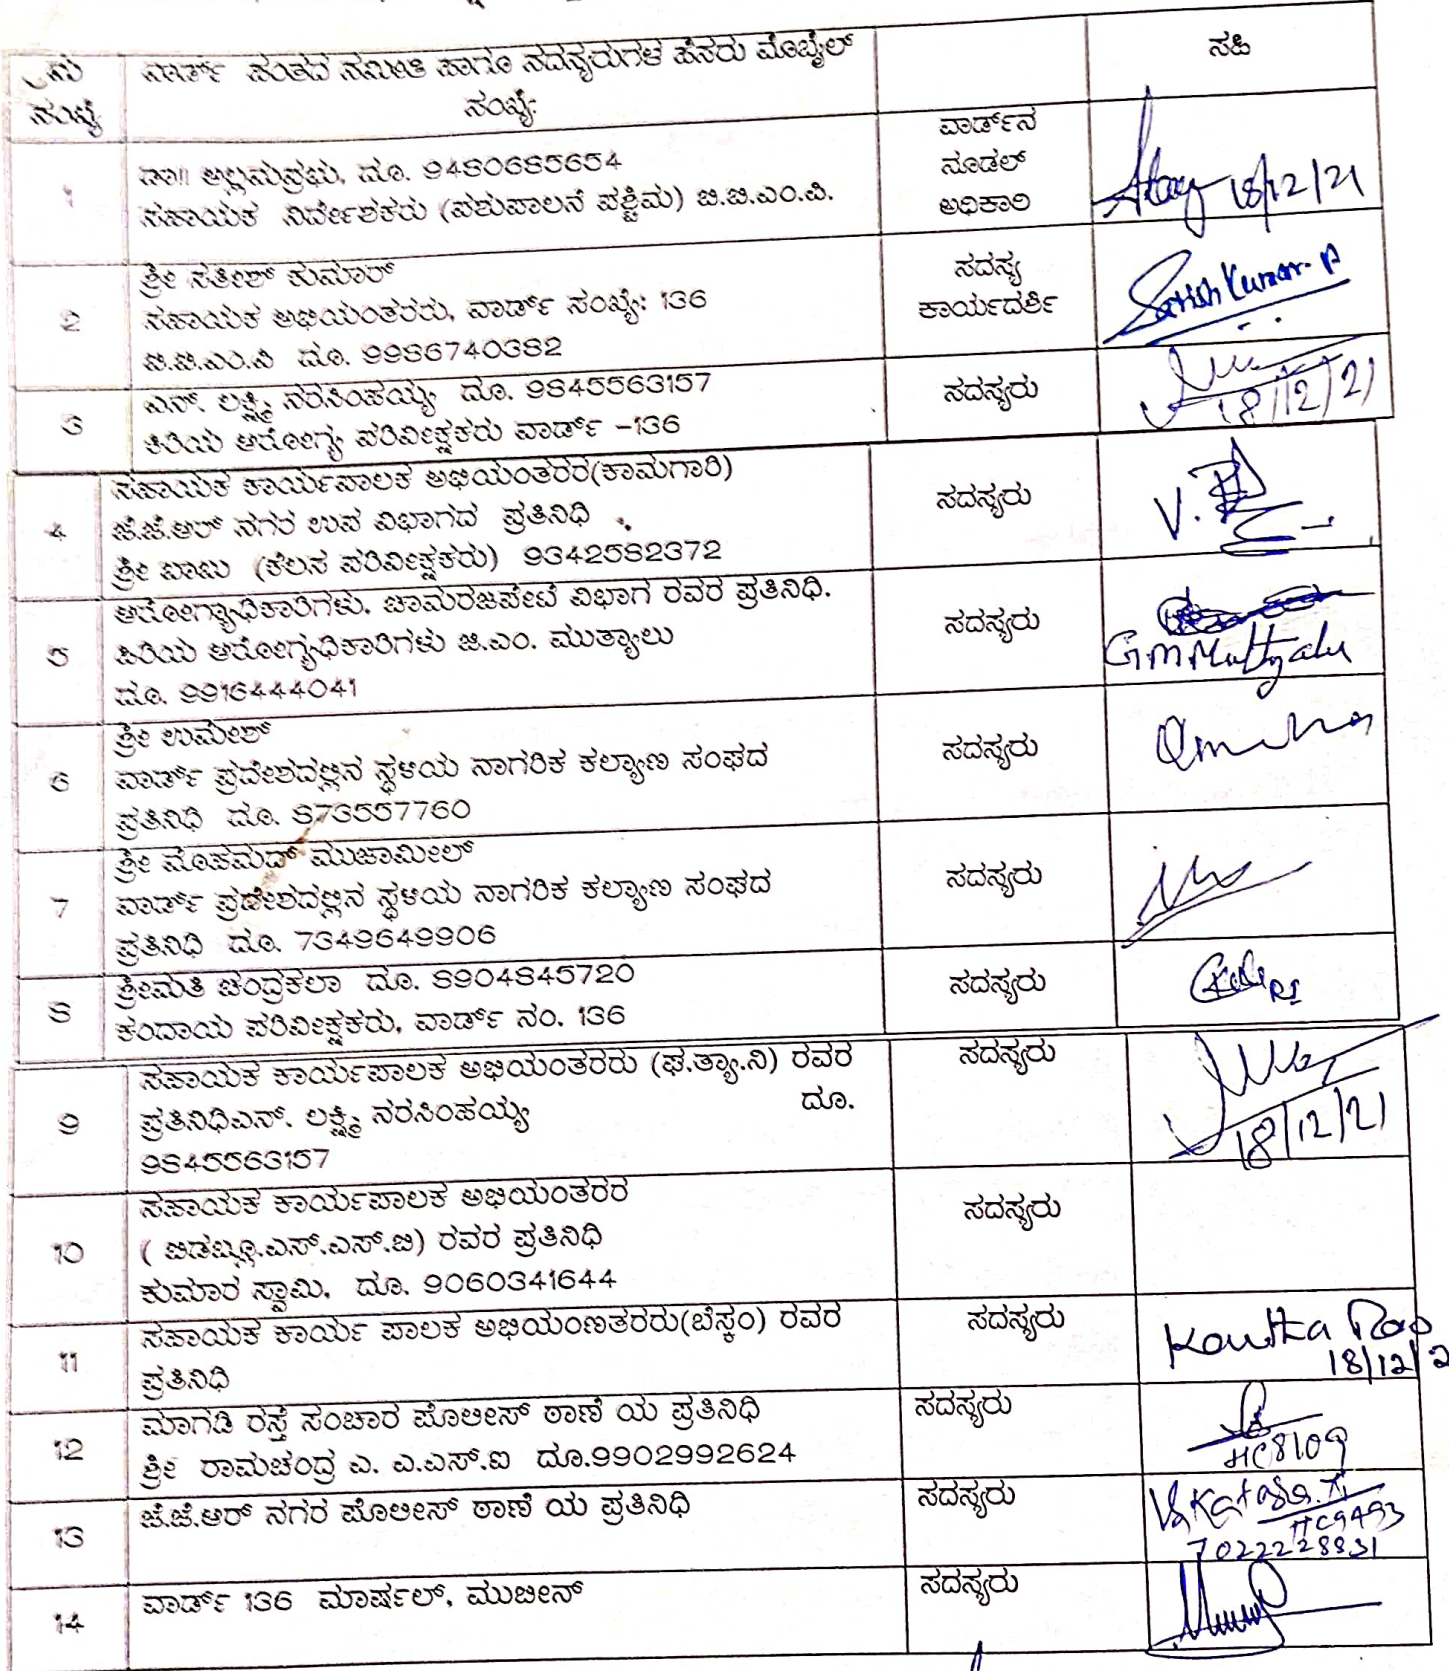 ಕ್ರಮ ಸಂಖ್ಯೆ
ವಾರ್ಡ್ ಹಂತದ ಸಮೀತಿ ಹಾಗೂ ಸದಸ್ಯರುಗಳ ಹೆಸರು ಮೊಬೈಲ್
ಸಂಖ್ಯೆ
ಸಹಿ
1
ಡಾ|| ಅಲ್ಲಮಪ್ರಭು, ದೂ. 9480685654
ಸಹಾಯಕ ನಿರ್ದೇಶಕರು (ಪಶುಪಾಲನೆ ಪಶ್ಚಿಮ) ಬಿ.ಬಿ.ಎಂ.ಪಿ.
ವಾರ್ಡ್‌ನ
ನೂಡಲ್
ಅಧಿಕಾರಿ
18/12/21
2
ಶ್ರೀ ಸತೀಶ್ ಕುಮಾರ್
ಸಹಾಯಕ ಅಭಿಯಂತರರು, ವಾರ್ಡ್ ಸಂಖ್ಯೆ: 136
ಬಿ.ಬಿ.ಎಂ.ಪಿ ದೂ. 9986740382
ಸದಸ್ಯ
ಕಾರ್ಯದರ್ಶಿ
Satish Kumar. P
3
ಎನ್. ಲಕ್ಷ್ಮಿ ನರಸಿಂಹಯ್ಯ ದೂ. 9845563157
ಕಿರಿಯ ಆರೋಗ್ಯ ಪರಿವೀಕ್ಷಕರು ವಾರ್ಡ್ -136
ಸದಸ್ಯರು
18/12/21
4
ಸಹಾಯಕ ಕಾರ್ಯಪಾಲಕ ಅಭಿಯಂತರರ(ಕಾಮಗಾರಿ)
ಜೆ.ಜೆ.ಆರ್ ನಗರ ಉಪ ವಿಭಾಗದ ಪ್ರತಿನಿಧಿ
ಶ್ರೀ ಬಾಬು (ಕೆಲಸ ಪರಿವೀಕ್ಷಕರು) 9342582372
ಸದಸ್ಯರು
5
ಆರೋಗ್ಯಾಧಿಕಾರಿಗಳು. ಚಾಮರಜಪೇಟೆ ವಿಭಾಗ ರವರ ಪ್ರತಿನಿಧಿ.
ಹಿರಿಯ ಆರೋಗ್ಯಧಿಕಾರಿಗಳು ಜಿ.ಎಂ. ಮುತ್ಯಾಲು
ದೂ. 9916444041
ಸದಸ್ಯರು
G.M Muttyalu
6
ಶ್ರೀ ಉಮೇಶ್
ವಾರ್ಡ್ ಪ್ರದೇಶದಲ್ಲಿನ ಸ್ಥಳಿಯ ನಾಗರಿಕ ಕಲ್ಯಾಣ ಸಂಘದ
ಪ್ರತಿನಿಧಿ ದೂ. 873557760
ಸದಸ್ಯರು
7
ಶ್ರೀ ಮೊಹಮದ್ ಮುಜಾಮೀಲ್
ವಾರ್ಡ್ ಪ್ರದೇಶದಲ್ಲಿನ ಸ್ಥಳಿಯ ನಾಗರಿಕ ಕಲ್ಯಾಣ ಸಂಘದ
ಪ್ರತಿನಿಧಿ ದೂ. 7349649906
ಸದಸ್ಯರು
8
ಶ್ರೀಮತಿ ಚಂದ್ರಕಲಾ ದೂ. 8904845720
ಕಂದಾಯ ಪರಿವೀಕ್ಷಕರು, ವಾರ್ಡ್ ನಂ. 136
ಸದಸ್ಯರು
9
ಸಹಾಯಕ ಕಾರ್ಯಪಾಲಕ ಅಭಿಯಂತರರು (ಘ.ತ್ಯಾ.ನಿ) ರವರ
ಪ್ರತಿನಿಧಿಎನ್. ಲಕ್ಷ್ಮಿ ನರಸಿಂಹಯ್ಯ ದೂ.
9845563157
ಸದಸ್ಯರು
18/12/21
10
ಸಹಾಯಕ ಕಾರ್ಯಪಾಲಕ ಅಭಿಯಂತರರ
( ಬಿಡಬ್ಲೂ.ಎಸ್.ಎಸ್.ಬಿ) ರವರ ಪ್ರತಿನಿಧಿ
ಕುಮಾರ ಸ್ವಾಮಿ, ದೂ. 9060341644
ಸದಸ್ಯರು
11
ಸಹಾಯಕ ಕಾರ್ಯ ಪಾಲಕ ಅಭಿಯಂಣತರರು(ಬೆಸ್ಕಂ) ರವರ
ಪ್ರತಿನಿಧಿ
ಸದಸ್ಯರು
Rao
18/12/2
12
ಮಾಗಡಿ ರಸ್ತೆ ಸಂಚಾರ ಪೊಲೀಸ್ ಠಾಣೆ ಯ ಪ್ರತಿನಿಧಿ
ಶ್ರೀ ರಾಮಚಂದ್ರ ಎ. ಎ.ಎಸ್.ಐ ದೂ.9902992624
ಸದಸ್ಯರು
HC8109
13
ಜೆ.ಜೆ.ಆರ್ ನಗರ ಪೊಲೀಸ್ ಠಾಣೆ ಯ ಪ್ರತಿನಿಧಿ
ಸದಸ್ಯರು
HC9493
7022228831
14
ವಾರ್ಡ್ 136 ಮಾರ್ಷಲ್, ಮುಬೀನ್
ಸದಸ್ಯರು